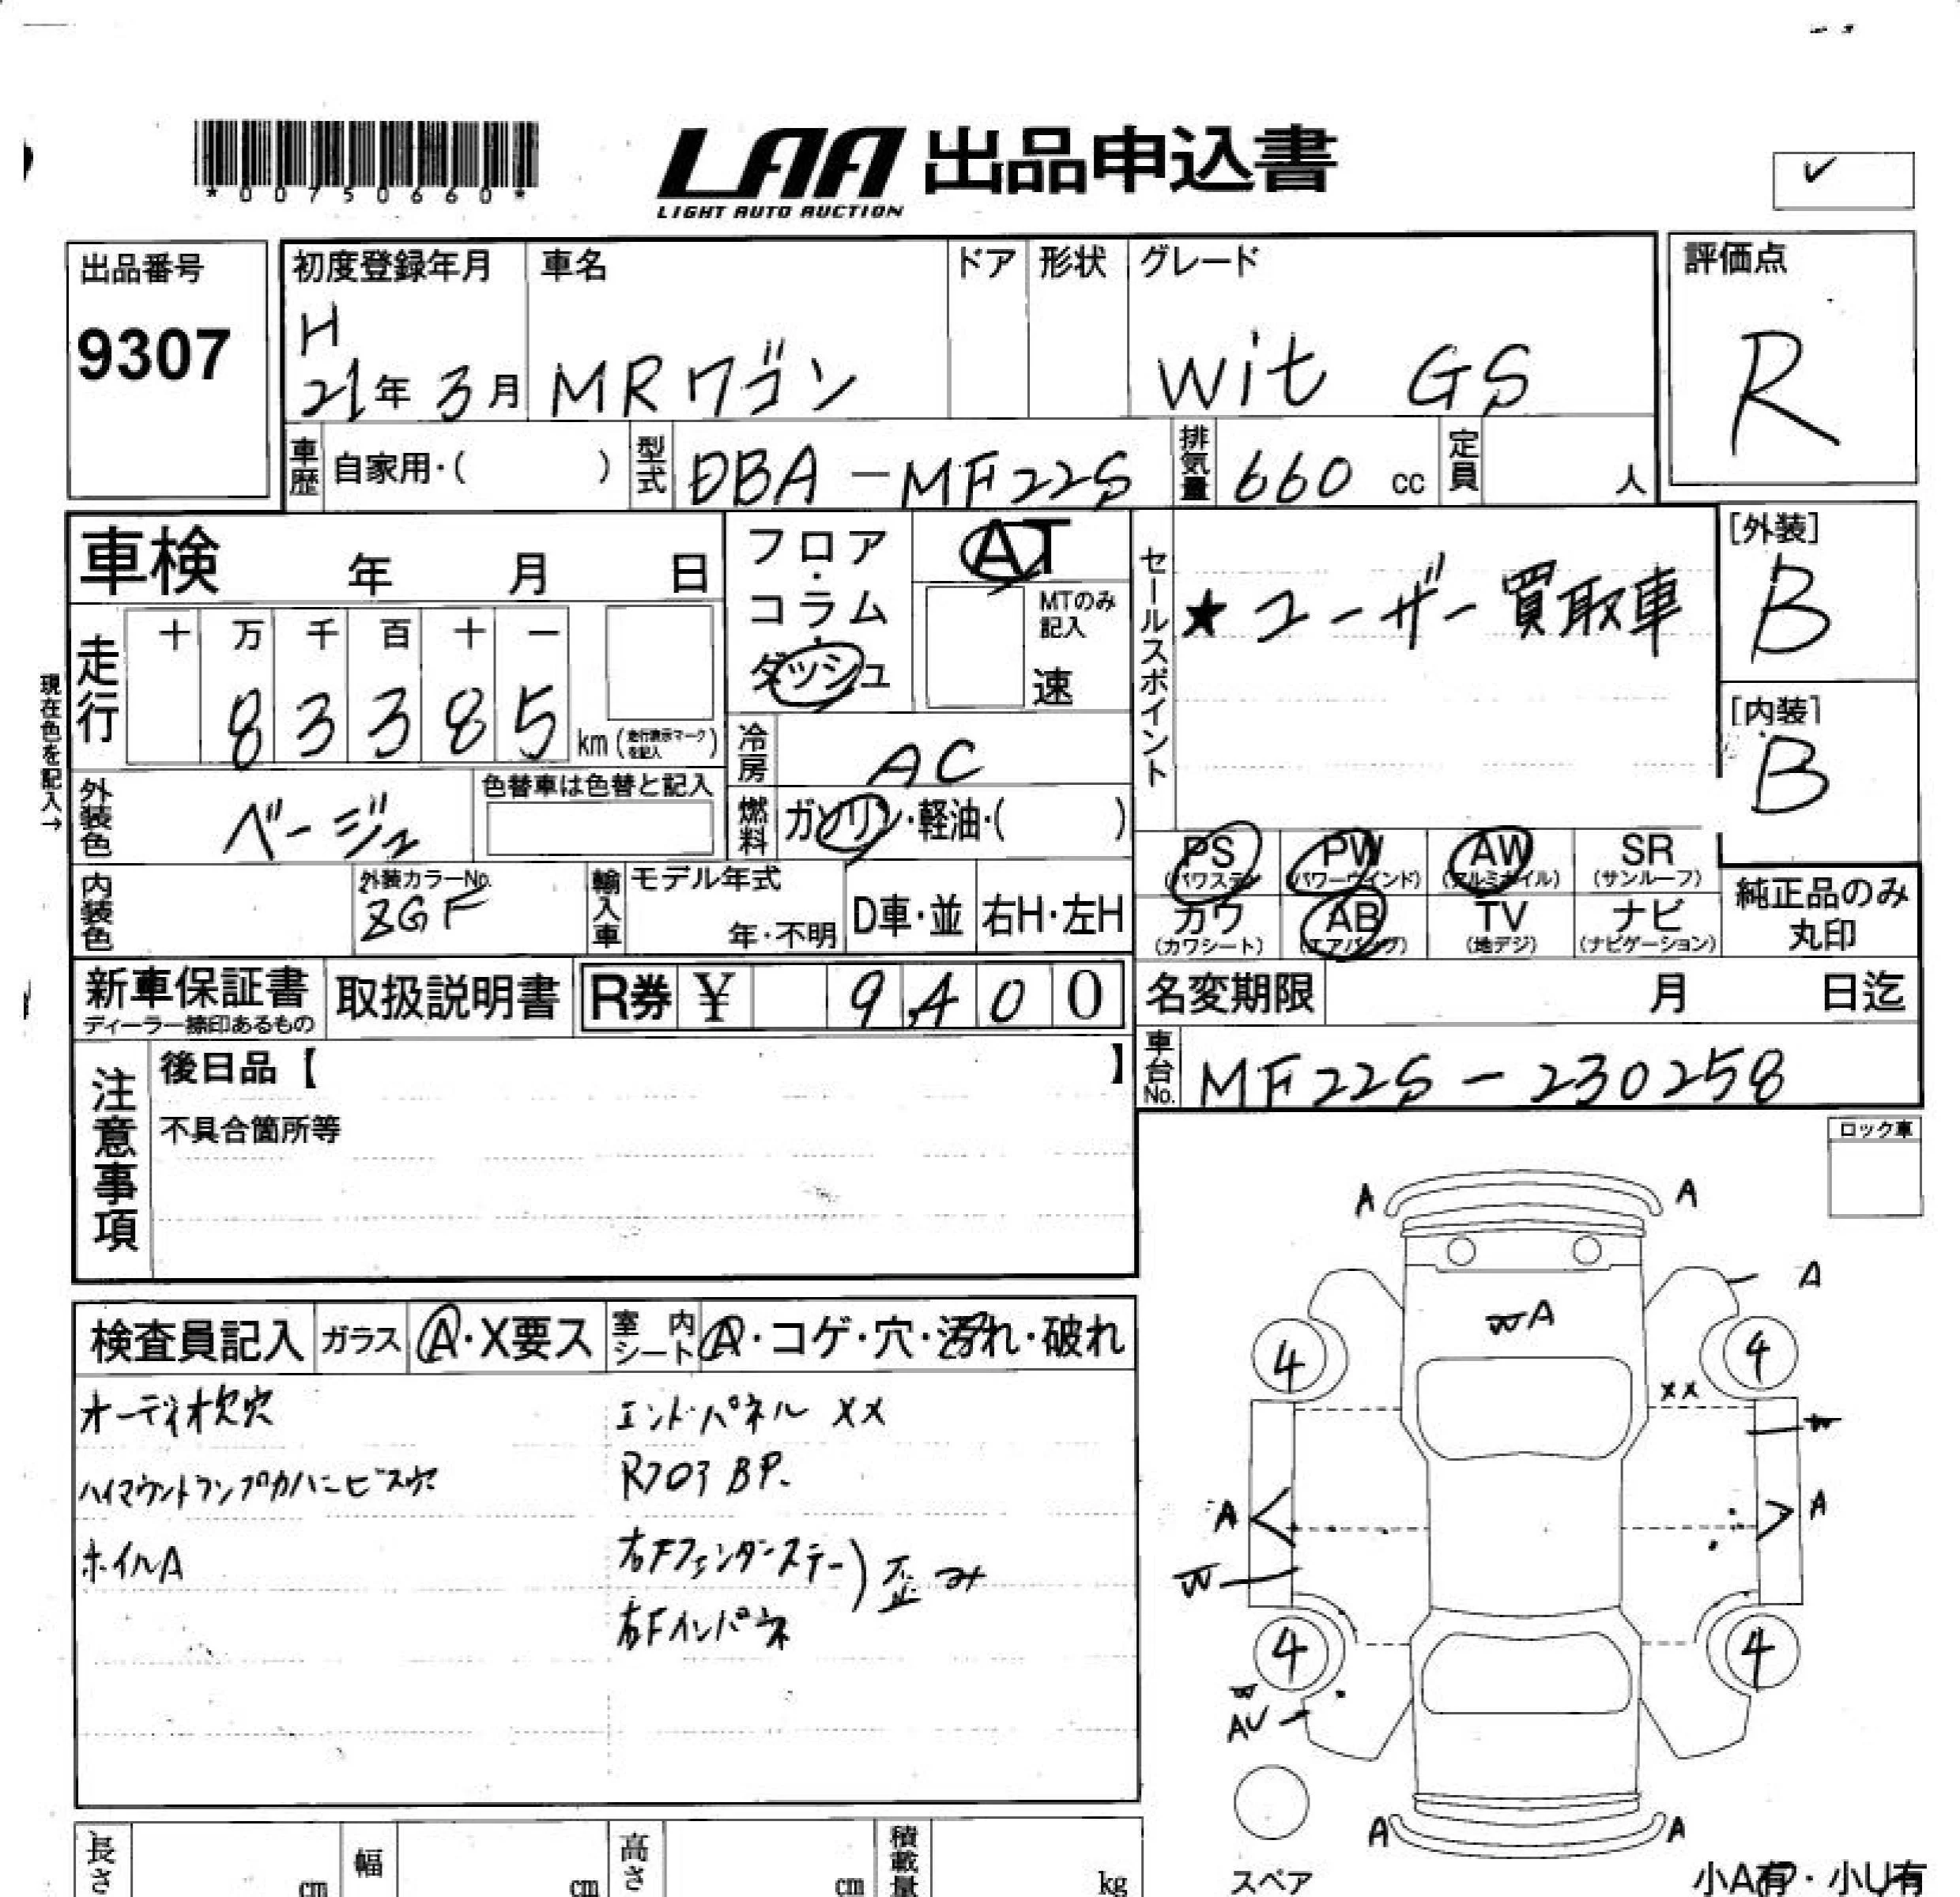 *00750660*
LAA 出品申込書
LIGHT AUTO AUCTION
✓
出品番号
9307
初度登録年月
H
21年 3月
車名
MRワゴン
ドア
形状
グレード
Wit GS
評価点
R
車歴 自家用・( )
型式 DBA-MF22S
排気量 660 cc
定員 人
車検 年 月 日
フロア・コラム・ダッシュ
AT
MTのみ記入
速
セールスポイント
★ユーザー買取車
[外装]
B
[内装]
B
現在色を記入→
走行
十 万 千 百 十 一
8 3 3 8 5 km (走行表示マークを記入)
冷房 AC
外装色 ベージュ
色替車は色替と記入
燃料 ガソリン・軽油・( )
PS (パワステ)
PW (パワーウインド)
AW (アルミホイル)
SR (サンルーフ)
カワ (カワシート)
AB (エアバッグ)
TV (地デジ)
ナビ (ナビゲーション)
純正品のみ丸印
内装色
外装カラーNo.
ZGF
輸入車
モデル年式
年・不明
D車・並
右H・左H
新車保証書
ディーラー捺印あるもの
取扱説明書
R券 ¥ 9,400
名変期限 月 日迄
車台No. MF22S-230258
注意事項
後日品【 】
不具合箇所等
ロック車
検査員記入
ガラス A・X要ス
室内シート A・コゲ・穴・汚れ・破れ
オーディオ欠穴
ハイマウントランプカバービス欠
ホイルA
エンドパネル XX
Rフロア BP.
右Fフェンダーステー
右Fインパネ
歪み
A A
A
WA
4 4
XX
W
A A
W
4 4
W
AU
A A
スペア
小A有・小U有
長さ cm
幅 cm
高さ cm
積載量 kg